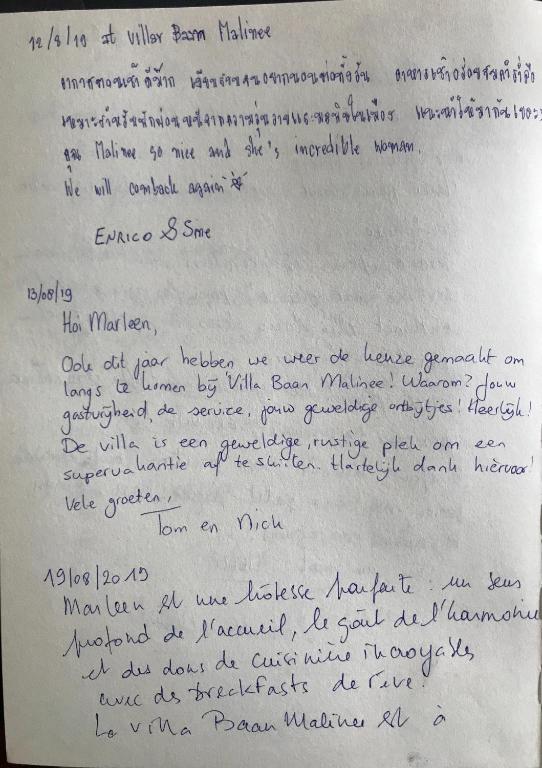 12/8/19 at Villar Baan Malinee
อากาศตอนเช้าดีมาก เงียบสงบจนอยากนอนต่อทั้งวัน อาหารเช้าอร่อยสมคำร่ำลือ
เหมาะสำหรับพักผ่อนหนีจากความวุ่นวายและมลพิษในเมือง แนะนำให้มากันเยอะๆ
คุณ Malinee so nice and she's incredible woman.
We will comback again
ENRICO & Sme
13/08/19
Hoi Marleen,
Ook dit jaar hebben we weer de keuze gemaakt om
langs te komen bij Villa Baan Malinee! Waarom? Jouw
gastvrijheid, de service, jouw geweldige ontbijtjes! Heerlijk!
De villa is een geweldige, rustige plek om een
supervakantie af te sluiten. Hartelijk dank hiervoor!
Vele groeten,
Tom en Nick
19/08/2019
Marleen est une hôtesse parfaite : un sens
profond de l'accueil, le goût de l'harmonie
et des dons de cuisinière incroyables
avec des breakfasts de rêve.
La villa Baan Malinee est à